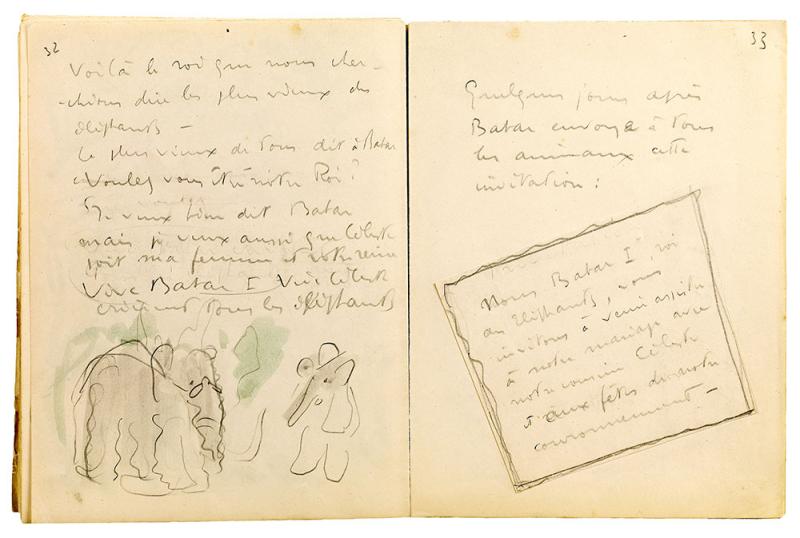 32
Voilà le roi que nous cher-
-chions dire les plus vieux des
éléphants -
Le plus vieux de tous dit à Batar
Voulez vous être notre Roi ?
Je veux bien dit Batar
mais je veux aussi que Céleste
soit ma femme et votre reine
Vive Batar I Vive Céleste
crièrent tous les éléphants
33
Quelques jours après
Batar envoya à tous
les animaux cette
invitation :
Nous Batar I, roi
des Eléphants, vous
invitons à venir assister
à notre mariage avec
notre cousine Céleste
et aux fêtes de notre
couronnement -